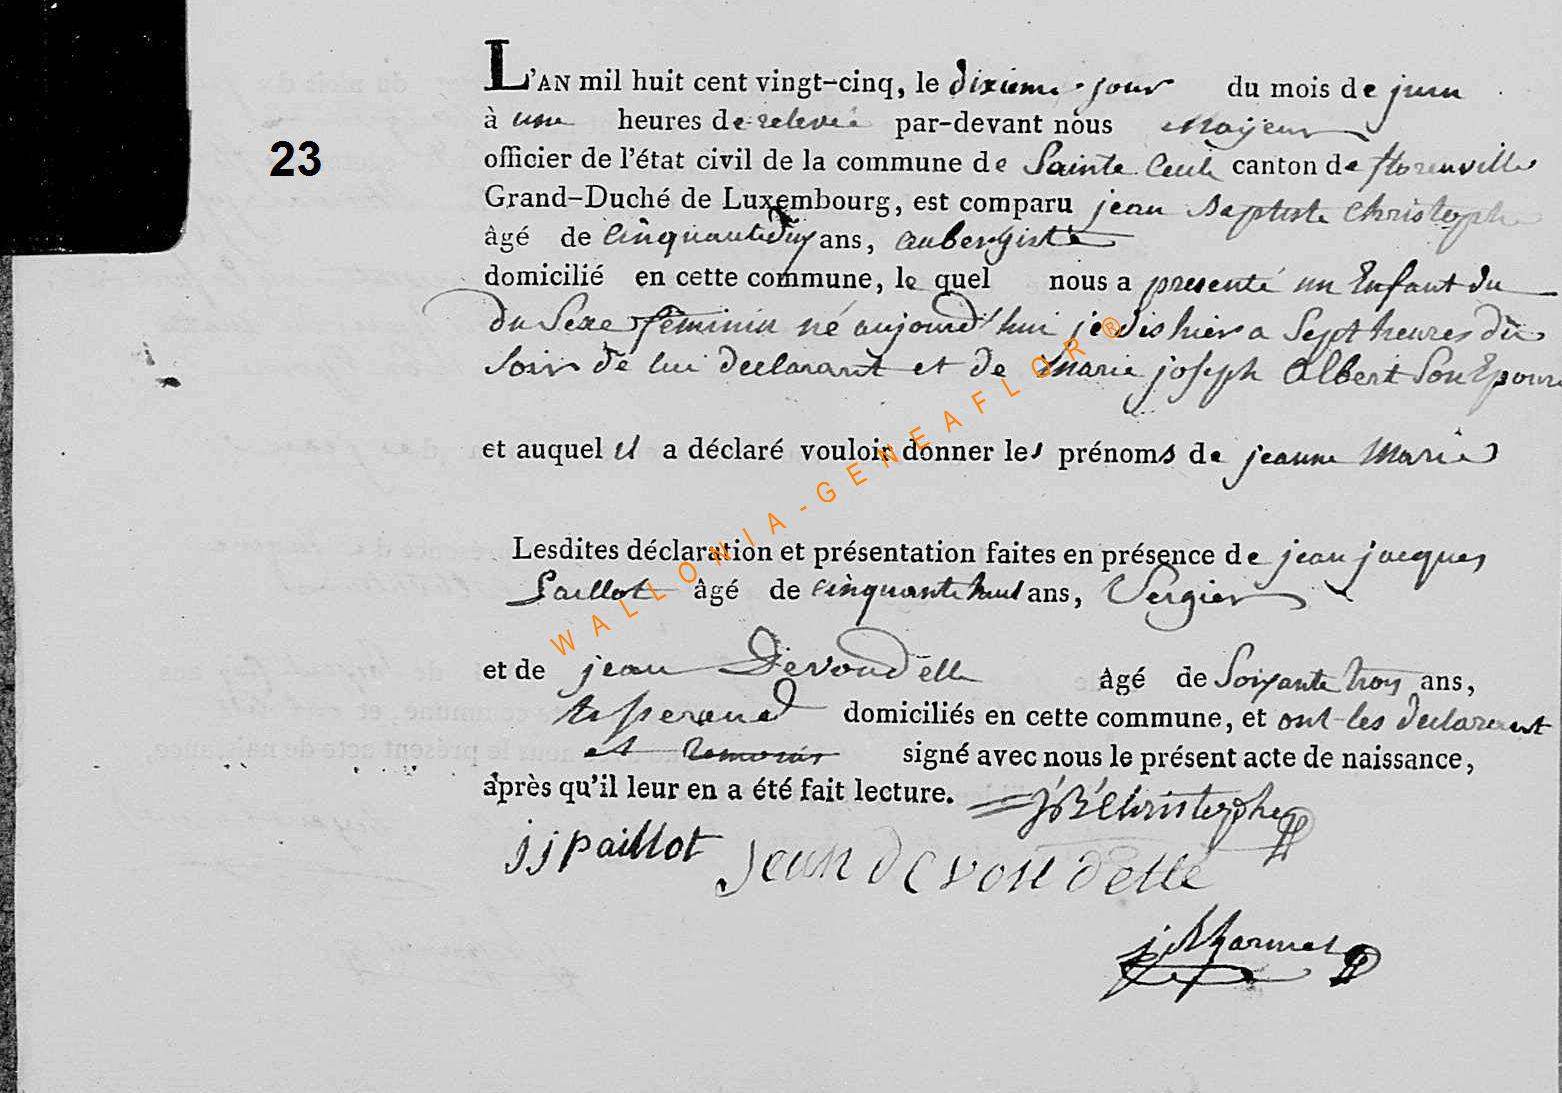 23
L'AN mil huit cent vingt-cinq, le dixieme jour du mois de juin
à une heures de relevée par-devant nous Mayeur
officier de l'état civil de la commune de Sainte Cecile canton de florenville
Grand-Duché de Luxembourg, est comparu jean Baptiste Christophe
âgé de Cinquante ans, aubergiste
domicilié en cette commune, le quel nous a presenté un Enfant du
du Sexe féminin né aujourd'hui je dis hier a Sept heures du
Soir de lui declarant et de Marie joseph Albert Son Epouse
et auquel il a déclaré vouloir donner les prénoms de jeanne Marie
Lesdites déclaration et présentation faites en présence de jean jacques
Paillot âgé de cinquante huit ans, Vergier
et de jean Devoudelle âgé de Soixante troy ans,
tisserand domiciliés en cette commune, et ont les declarant
et temoins signé avec nous le présent acte de naissance,
après qu'il leur en a été fait lecture. J B Christophe
j j Paillot jean devoudelle
WALLONIA-GENEAFLOR®